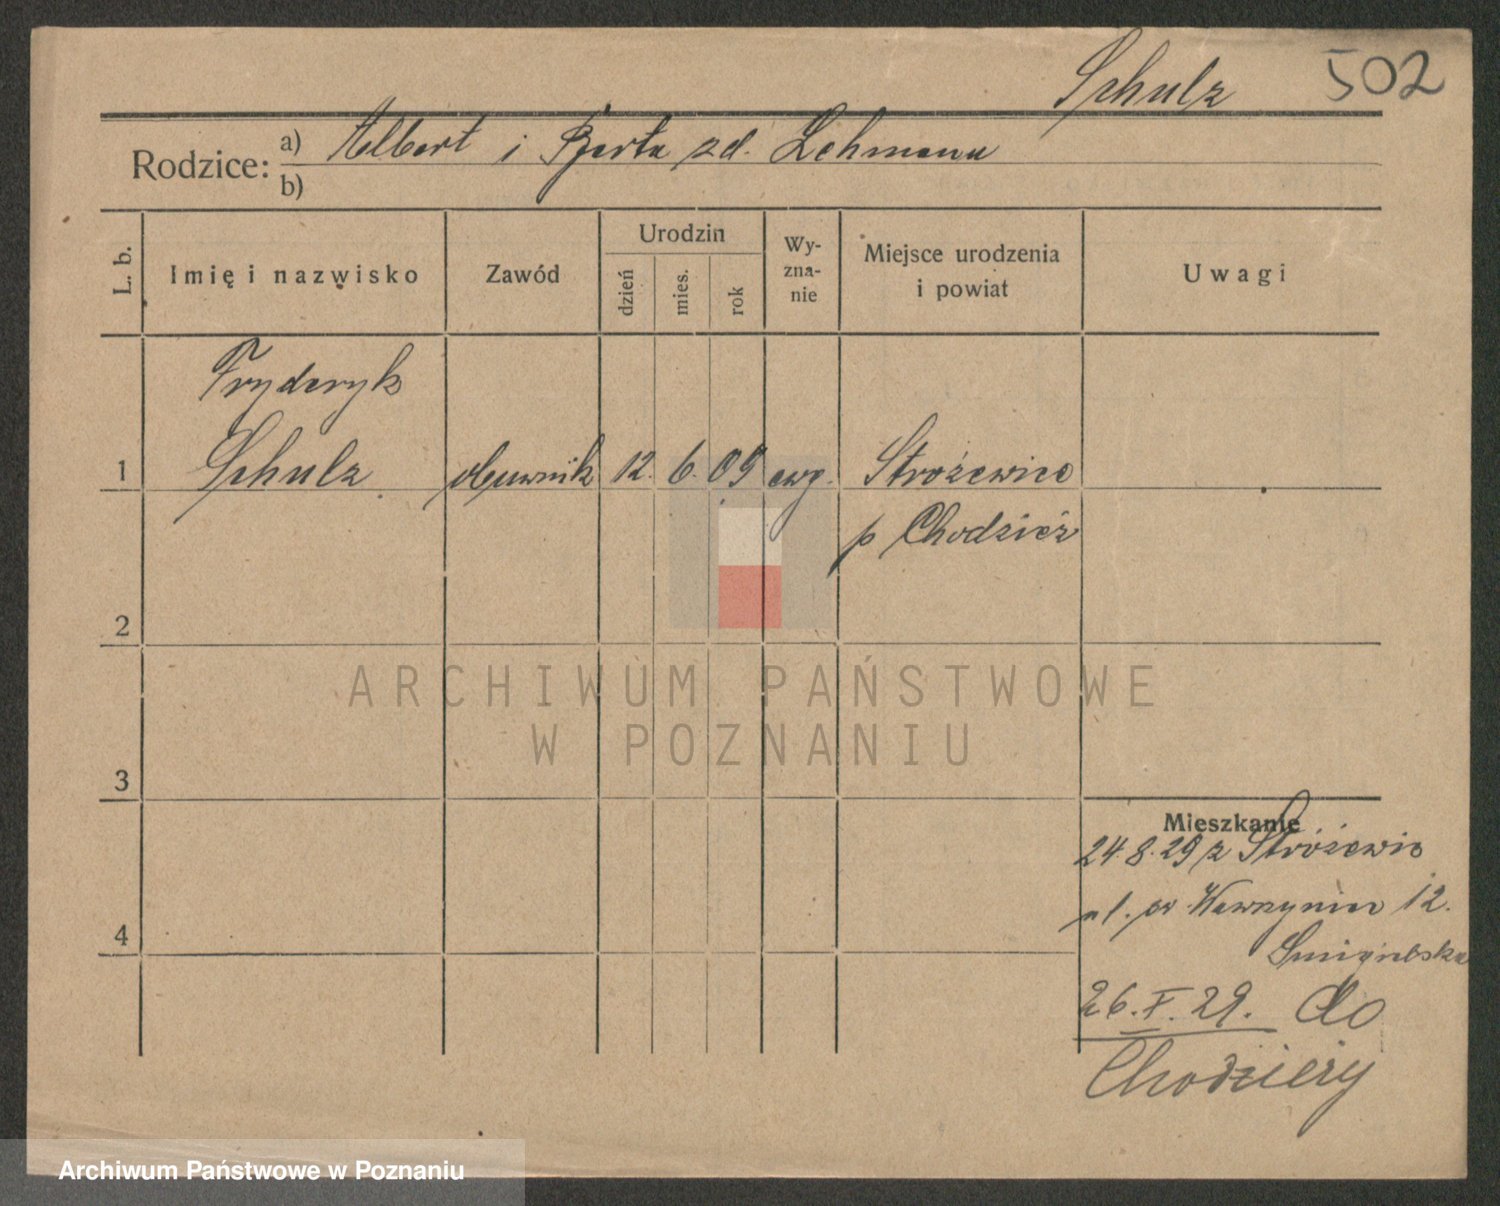 Schulz 502
Rodzice: a) Albert i Berta zd. Lehmann
b)
L. b. Imię i nazwisko Zawód Urodzin dzień mies. rok Wy-zna-nie Miejsce urodzenia i powiat Uwagi
Fryderyk
1 Schulz obuwnik 12. 6. 09 ewg. Strożewice
p Chodzież
2
ARCHIWUM PAŃSTWOWE
W POZNANIU
3
Mieszkanie
24.8.29 z Stróżewic
ul. św Wawrzyniec 12.
4
Smigielska
26. 29. do
Chodzieży
Archiwum Państwowe w Poznaniu